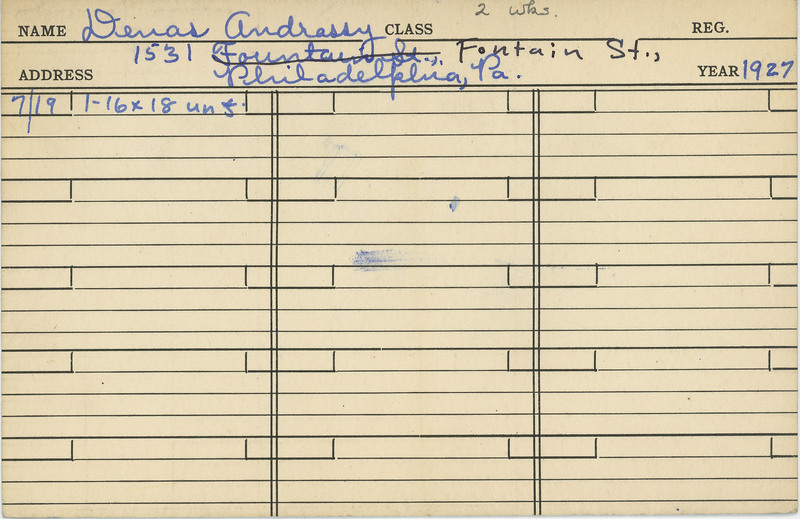 2 wks.
NAME Denas Andrassy CLASS REG.
1531 Fountain St., Fontain St.,
ADDRESS Philadelphia, Pa. YEAR 1927
7/19 1-16x18 unf.